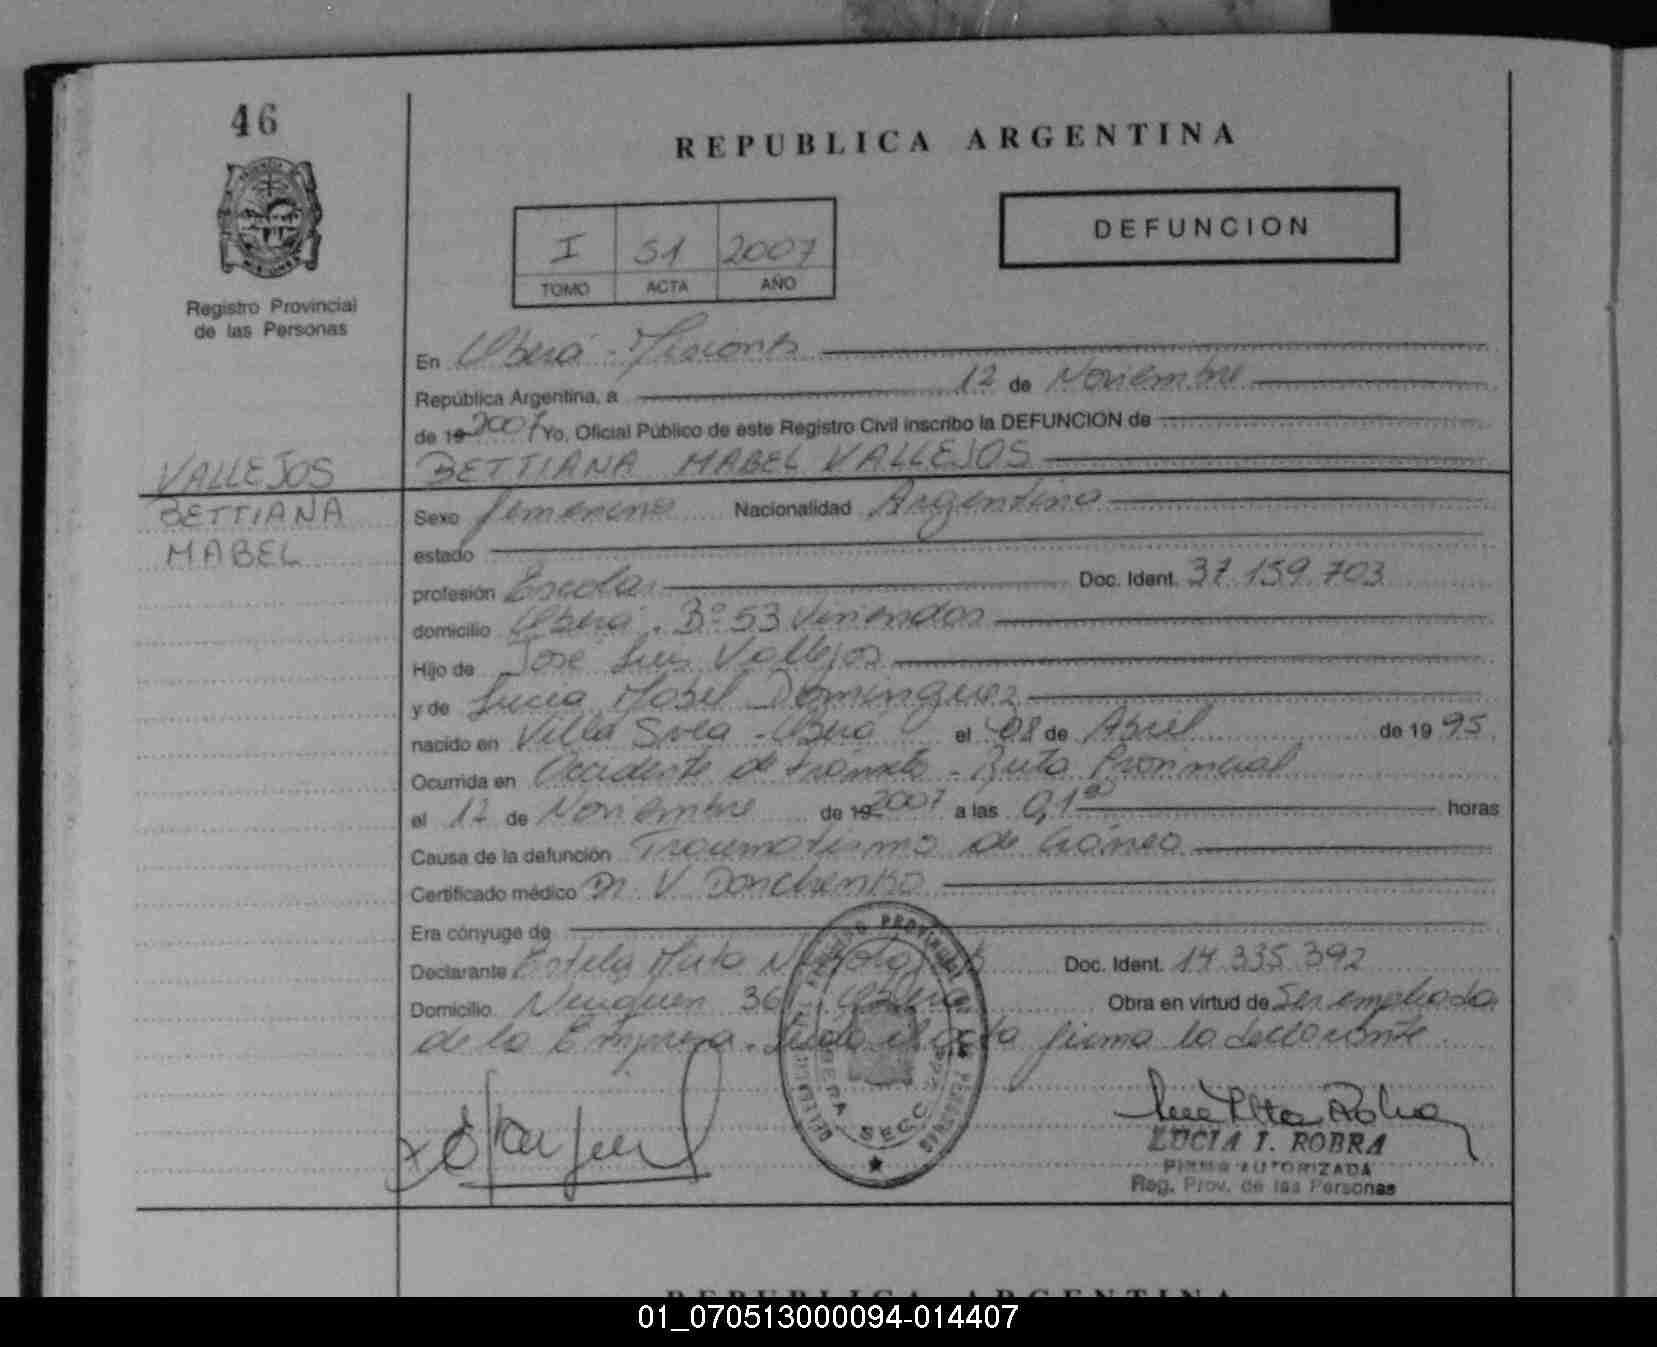 46
REPUBLICA ARGENTINA
Registro Provincial
de las Personas
I 51 2007
TOMO ACTA AÑO
DEFUNCION
En Oberá - Misiones
República Argentina, a 12 de Noviembre
de 19 2007 Yo, Oficial Público de este Registro Civil inscribo la DEFUNCION de
BETTIANA MABEL VALLEJOS
VALLEJOS
BETTIANA
MABEL
Sexo femenino Nacionalidad Argentina
estado
profesión Escolar Doc. Ident. 37.159.703
domicilio Oberá. Bº 53 Viviendas
Hijo de José Luis Vallejos
y de Mabel Dominguez
nacido en Villa Svea - Oberá el 08 de Abril de 1995
Ocurrida en Accidente de tránsito - Ruta Provincial
el 12 de Noviembre de 19 2007 a las horas
Causa de la defunción Traumatismo de Cráneo
Certificado médico Dr. V. Donchenko
Era cónyuge de
Declarante Estela Doc. Ident. 14.335.392
Domicilio Neuquen Oberá Obra en virtud de Ser empleada
de la Empresa. Leída el acta firma la declarante
LUCIA I. ROBRA
FIRMA AUTORIZADA
Reg. Prov. de las Personas
REPUBLICA ARGENTINA
01_070513000094-014407